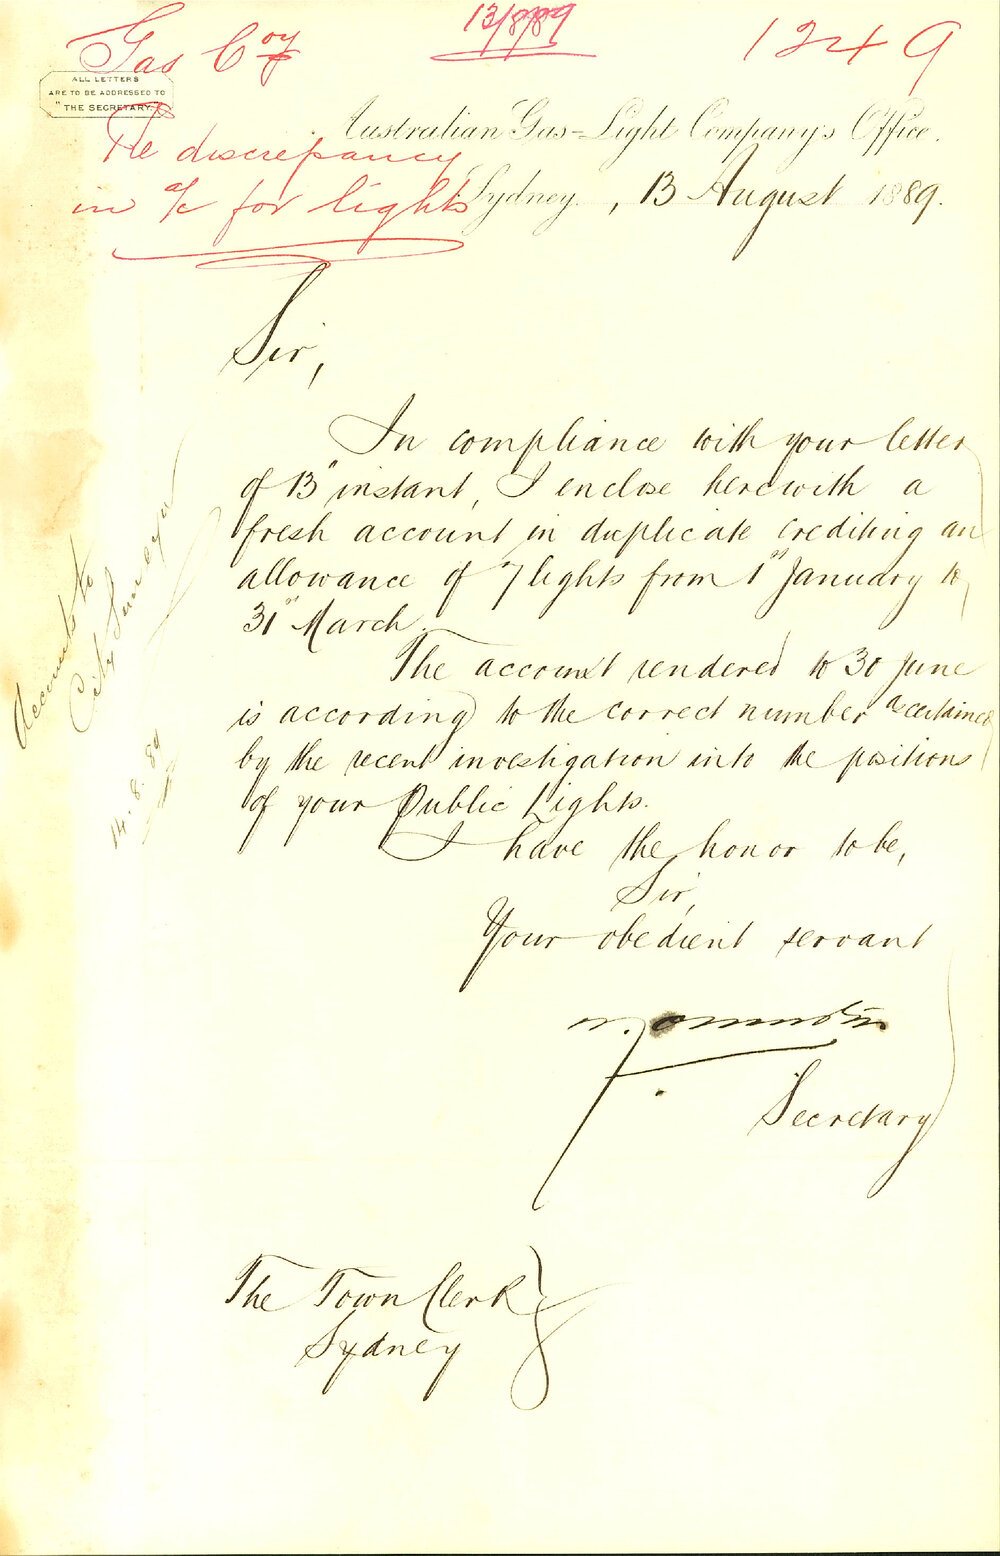 Gas Coy
13/8/89
1249
ALL LETTERS
ARE TO BE ADDRESSED TO
"THE SECRETARY."
Re discrepancy
in a/c for lights
Australian Gas-Light Company's Office.
Sydney, 13 August 1889.
Sir,
In compliance with your letter
of 13" instant, I enclose herewith a
fresh account in duplicate crediting an
allowance of 7 lights from 1st January to
31st March.
The account rendered to 30 June
is according to the correct number ascertained
by the recent investigation into the positions
of your Public Lights.
I have the honor to be,
Sir,
Your obedient servant
Secretary
The Town Clerk
Sydney
Accounts to
City Surveyor
14.8.89